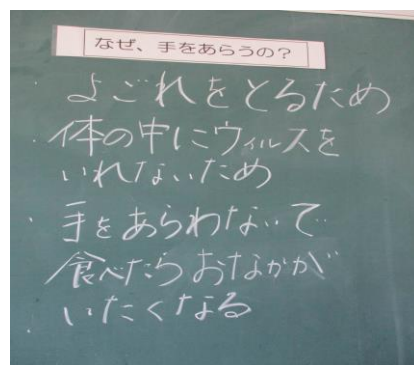 なぜ、手をあらうの?
・よごれをとるため
・体の中にウィルスを
いれないため
・手をあらわないで
食べたらおなかが
いたくなる
・